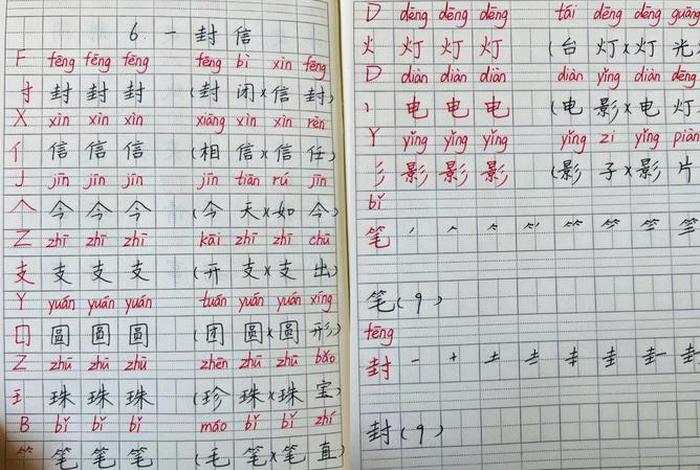 6. 一封信
F fēng fēng fēng fēng bì xìn fēng
扌 封 封 封 (封 闭)(信 封)
X xìn xìn xìn xiāng xìn xìn rèn
亻 信 信 信 (相 信)(信 任)
J jīn jīn jīn jīn tiān rú jīn
人 今 今 今 (今 天)(如 今)
Z zhī zhī zhī kāi zhī zhī chū
支 支 支 支 (开 支)(支 出)
Y yuán yuán yuán tuán yuán yuán xíng
囗 圆 圆 圆 (团 圆)(圆 形)
Z zhū zhū zhū zhēn zhū zhū bǎo
王 珠 珠 珠 (珍 珠)(珠 宝)
B bǐ bǐ bǐ máo bǐ bǐ zhí
⺮ 笔 笔 笔 (毛 笔)(笔 直)
D dēng dēng dēng tái dēng dēng guāng
火 灯 灯 灯 (台 灯)(灯 光
D diàn diàn diàn diàn yǐng diàn dēng
电 电 电 (电 影)(电 灯
Y yǐng yǐng yǐng yǐng zi yǐng piàn
彡 影 影 影 (影 子)(影 片
bǐ
笔
笔(9)
fēng
封 一 十 土
封(9)